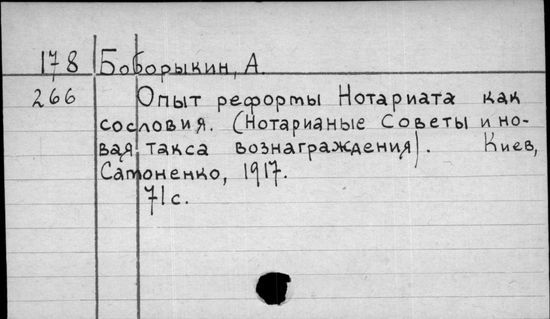 178 Боборыкин, А.
266 Опыт реформы Нотариата как
сословия. (Нотарианые Советы и но-
вая такса вознаграждения). Киев,
Самоненко, 1917.
71 с.